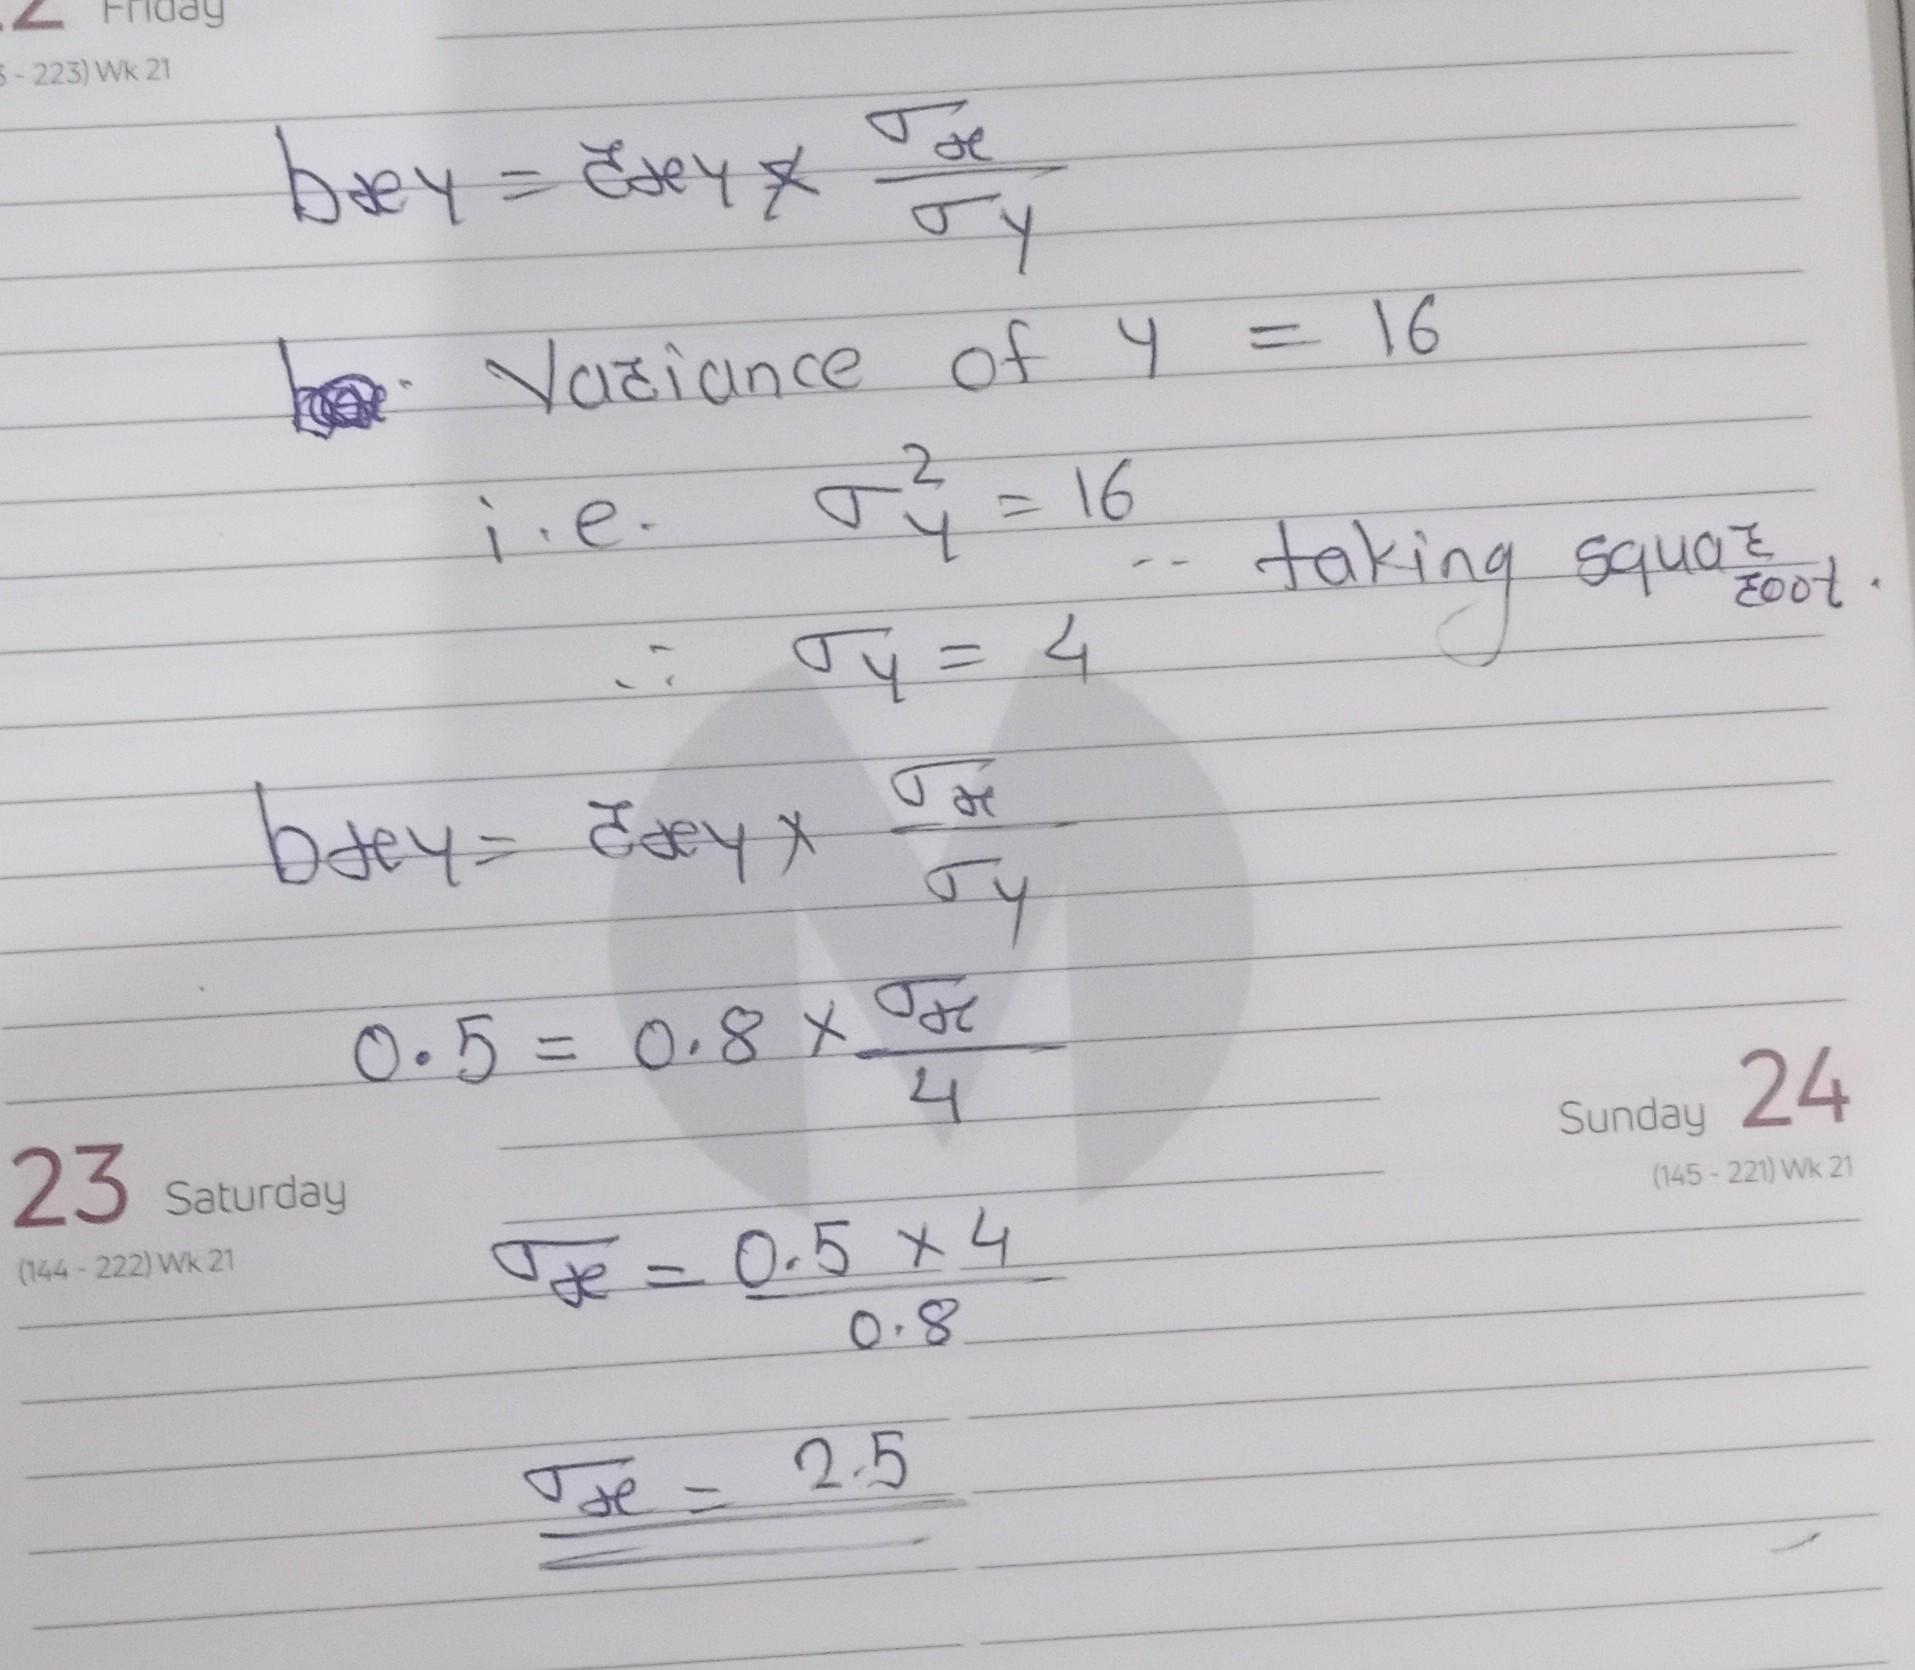 Friday
- 223) Wk 21
bxy = rxy × σx / σy
Variance of y = 16
i.e. σ²y = 16
-- taking squar root.
∴ σy = 4
bxy = rxy × σx / σy
0.5 = 0.8 × σx / 4
Sunday 24
(145 - 221) Wk 21
23 Saturday
(144 - 222) Wk 21
σx = 0.5 × 4 / 0.8
σx = 2.5